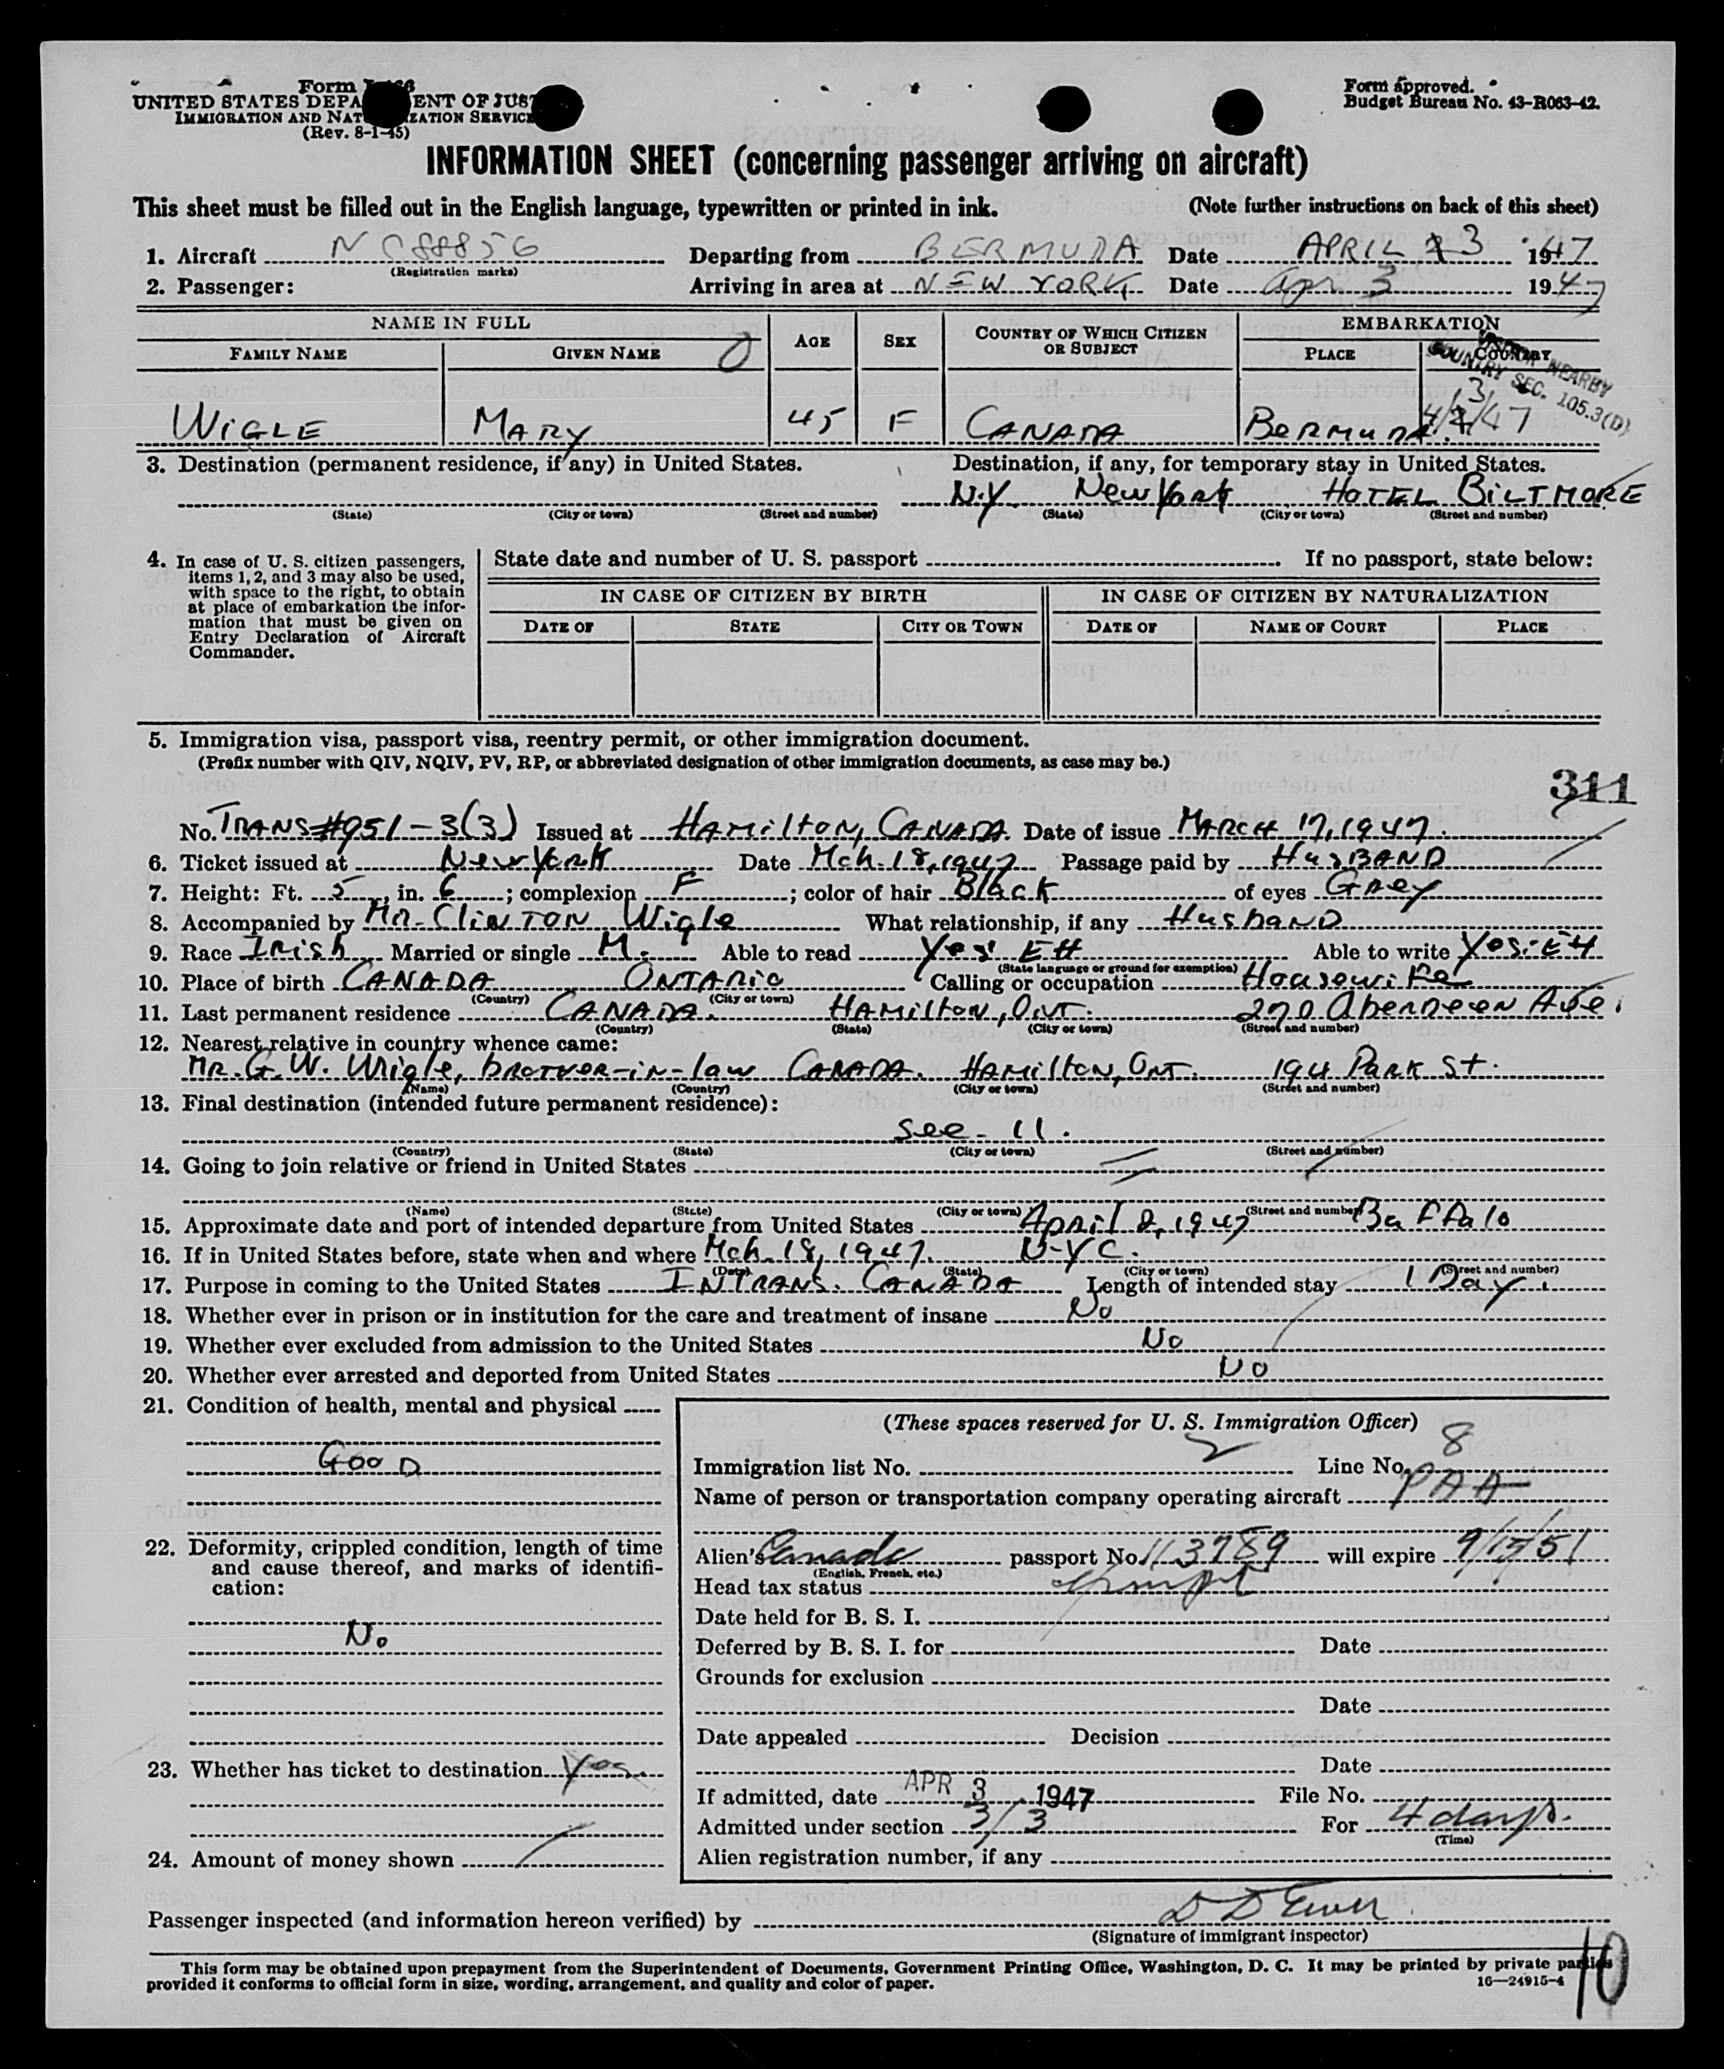 Form I-466
UNITED STATES DEPA ENT OF JUST
IMMIGRATION AND NAT IZATION SERVICE
(Rev. 8-1-45)
Form approved.
Budget Bureau No. 43-R063-42.
INFORMATION SHEET (concerning passenger arriving on aircraft)
This sheet must be filled out in the English language, typewritten or printed in ink. (Note further instructions on back of this sheet)
1. Aircraft NC88856 Departing from BERMUDA Date APRIL 3 1947
(Registration marks)
2. Passenger: Arriving in area at NEW YORK Date Apr 3 1947
NAME IN FULL AGE SEX COUNTRY OF WHICH CITIZEN OR SUBJECT EMBARKATION
FAMILY NAME GIVEN NAME O PLACE COUNTRY
VISITOR NEARBY
COUNTRY SEC. 105.3(D)
3
WIGLE MARY 45 F CANADA BERMUDA. 4/2/47
3. Destination (permanent residence, if any) in United States. Destination, if any, for temporary stay in United States.
N.Y. New York HOTEL BILTMORE
(State) (City or town) (Street and number) (State) (City or town) (Street and number)
4. In case of U. S. citizen passengers, items 1, 2, and 3 may also be used, with space to the right, to obtain at place of embarkation the information that must be given on Entry Declaration of Aircraft Commander.
State date and number of U. S. passport If no passport, state below:
IN CASE OF CITIZEN BY BIRTH IN CASE OF CITIZEN BY NATURALIZATION
DATE OF STATE CITY OR TOWN DATE OF NAME OF COURT PLACE
5. Immigration visa, passport visa, reentry permit, or other immigration document.
(Prefix number with QIV, NQIV, PV, RP, or abbreviated designation of other immigration documents, as case may be.)
311
No. TRANS #951-3(3) Issued at HAMILTON, CANADA Date of issue MARCH 17, 1947.
6. Ticket issued at New York Date Mch. 18, 1947 Passage paid by HUSBAND
7. Height: Ft. 5, in. 6; complexion F; color of hair Black of eyes Grey
8. Accompanied by Mr. CLINTON Wigle What relationship, if any HusbanD
9. Race Irish Married or single M. Able to read Yes EH Able to write Yes. EH
(State language or ground for exemption)
10. Place of birth CANADA ONTARIO Calling or occupation Housewife
(Country) (City or town)
11. Last permanent residence CANADA. HAMILTON, ONT. 270 Aberdeen Ave.
(Country) (State) (City or town) (Street and number)
12. Nearest relative in country whence came:
MR. G. W. Wigle, brother-in-law CANADA. HAMILTON, ONT. 194 PARK St.
(Name) (Country) (City or town) (Street and number)
13. Final destination (intended future permanent residence):
See - 11.
(Country) (State) (City or town) (Street and number)
14. Going to join relative or friend in United States
(Name) (State) (City or town) (Street and number)
15. Approximate date and port of intended departure from United States April 2, 1947 Buffalo
16. If in United States before, state when and where Mch. 18, 1947. N.Y.C.
(Date) (State) (City or town) (Street and number)
17. Purpose in coming to the United States INTRANS. CANADA Length of intended stay 1 Day.
18. Whether ever in prison or in institution for the care and treatment of insane No
19. Whether ever excluded from admission to the United States No
20. Whether ever arrested and deported from United States No
21. Condition of health, mental and physical
GOOD
22. Deformity, crippled condition, length of time and cause thereof, and marks of identification:
No
23. Whether has ticket to destination Yes.
24. Amount of money shown
(These spaces reserved for U. S. Immigration Officer)
Immigration list No. 2 Line No. 8
Name of person or transportation company operating aircraft PAA
Alien's Canada passport No. 113789 will expire 9/15/51
(English, French, etc.)
Head tax status exempt
Date held for B. S. I.
Deferred by B. S. I. for Date
Grounds for exclusion
Date
Date appealed Decision
Date
If admitted, date APR 3 1947 File No.
Admitted under section 3/3 For 4 days.
(Time)
Alien registration number, if any
Passenger inspected (and information hereon verified) by
(Signature of immigrant inspector)
This form may be obtained upon prepayment from the Superintendent of Documents, Government Printing Office, Washington, D. C. It may be printed by private parties
provided it conforms to official form in size, wording, arrangement, and quality and color of paper. 16—24915-4
10